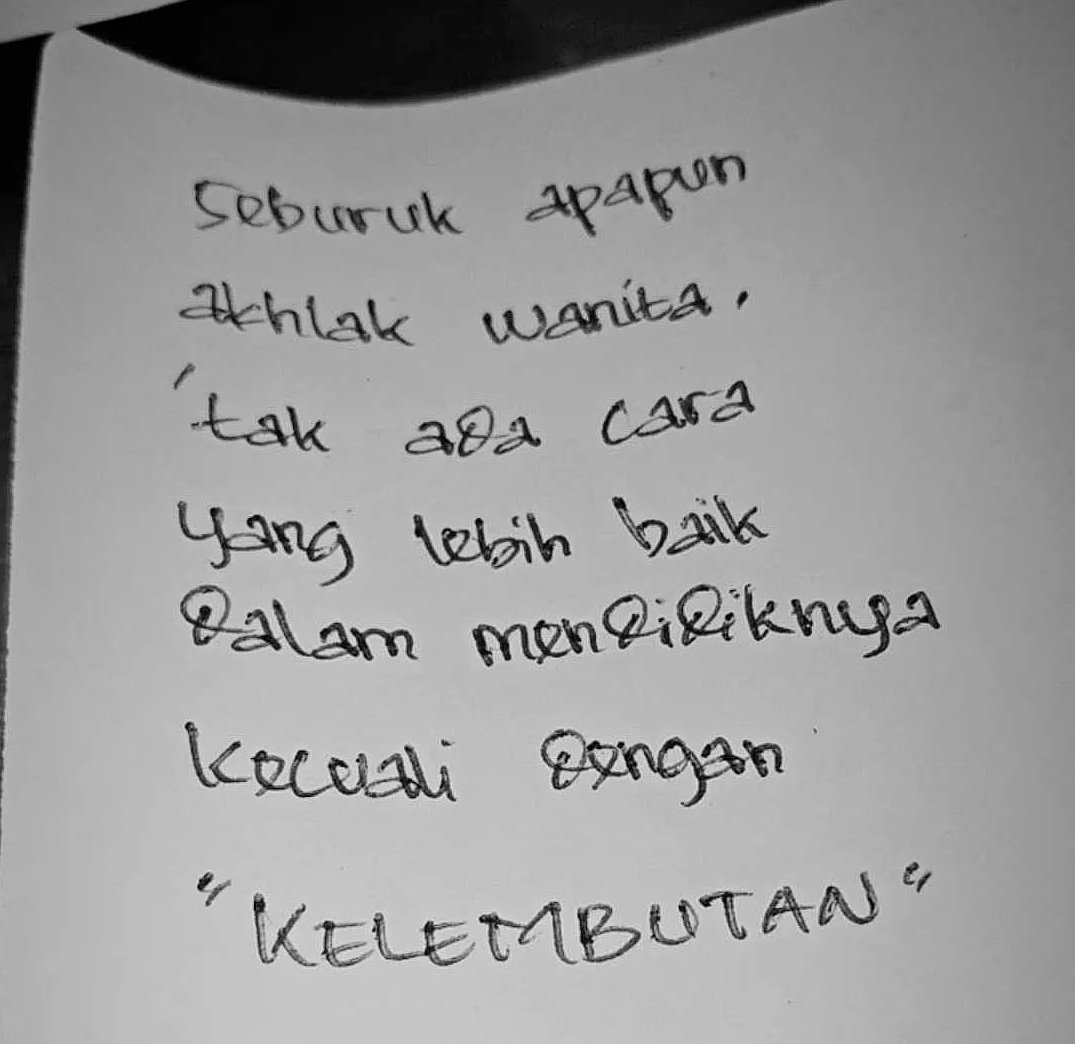 Seburuk apapun
akhlak wanita,
'tak ada cara
yang lebih baik
dalam mendidiknya
kecuali dengan
"KELEMBUTAN"